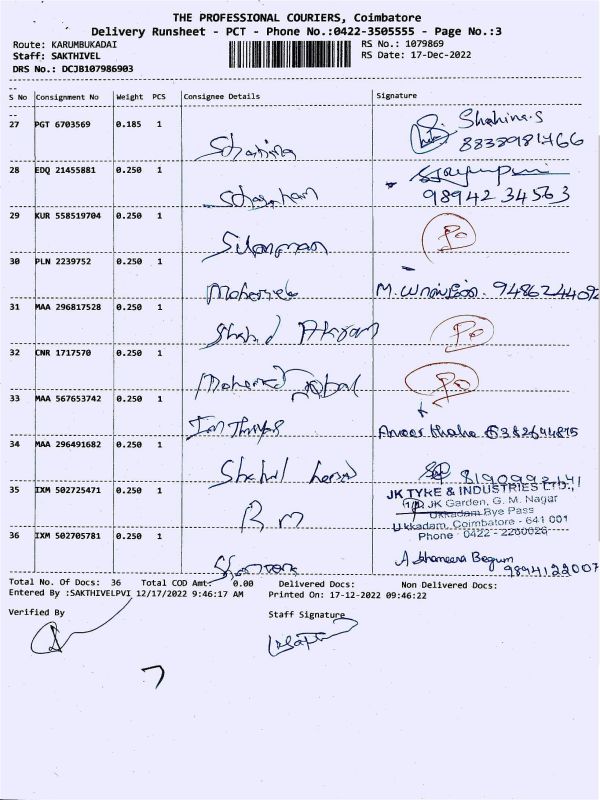 THE PROFESSIONAL COURIERS, Coimbatore
Delivery Runsheet - PCT - Phone No.:0422-3505555 - Page No.:3
Route: KARUMBUKADAI
RS No.: 1079869
Staff: SAKTHIVEL
RS Date: 17-Dec-2022
DRS No.: DCJB107986903
S No Consignment No Weight PCS Consignee Details Signature
27 PGT 6703569 0.185 1 Shahina Shahina.S
28 EDQ 21455881 0.250 1
98942 34563
29 KUR 558519704 0.250 1 PO
30 PLN 2239752 0.250 1 M.
31 MAA 296817528 0.250 1 Shahid Akram PO
32 CNR 1717570 0.250 1 PO
33 MAA 567653742 0.250 1
34 MAA 296491682 0.250 1
35 IXM 502725471 0.250 1 R M
JK TYRE & INDUSTRIES LTD.,
JK Garden, G. M. Nagar
Ukkadam Bye Pass
Ukkadam, Coimbatore - 641 001
Phone : 0422 - 2260026
36 IXM 502705781 0.250 1 A Shameera Begum
9894122007
Total No. Of Docs: 36 Total COD Amt: 0.00 Delivered Docs: Non Delivered Docs:
Entered By :SAKTHIVELPVI 12/17/2022 9:46:17 AM Printed On: 17-12-2022 09:46:22
Verified By Staff Signature